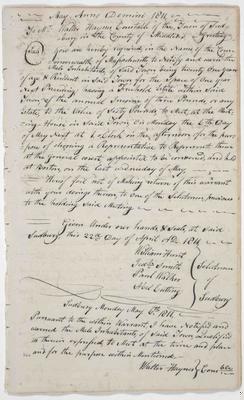 May Anno Domini 1811
To Mr. Walter Haynes Constable of the Town of Sud-
bury in the County of Middlesex Greeting
You are hereby required in the Name of the Com-
monwealth of Massachusetts to Notify and warn the
Male Inhabitants of said Town being twenty one years
of age & Resident in said Town for the space of one Year
Next Preceding, having a Freehold Estate within Said
Town of the annual Income of three Pounds, or any
Estate to the Value of Sixty Pounds to Meet at the Meet-
ing House in said Town On Monday the 6th Day
of May Next at O Clock in the afternoon for the pur-
pose of choosing a Representative to Represent them
at the General Court appointed to be convened, and held
at Boston, on the last Wednesday of May,
Hereof fail not of Making return of this warrant
with your doings therein to One of the Selectmen, previous
to the holding said Meeting
Given Under our hands & Seals at Said
Sudbury this 22nd Day of April AD. 1811
William Hunt
Smith
Paul Walker
Abel Cutting
Selectmen
of
Sudbury
Sudbury Monday May 6th, 1811
Pursuant to the within Warrant, I have Notified and
warned the Male Inhabitants of said Town Qualified
as therein expressed to Meet at the time and place
and for the purpose within Mentioned
Walter Haynes Constable